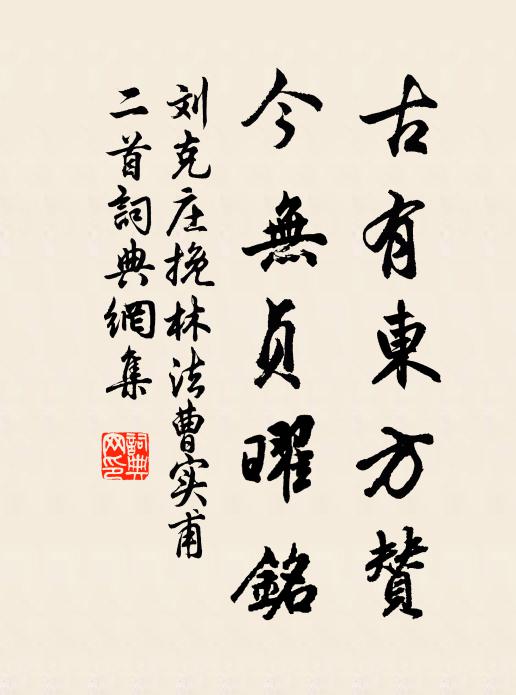 古有東方贊
今無貞曜銘
刘克庄挽林法曹实甫
二首詞典網集
詞典网印